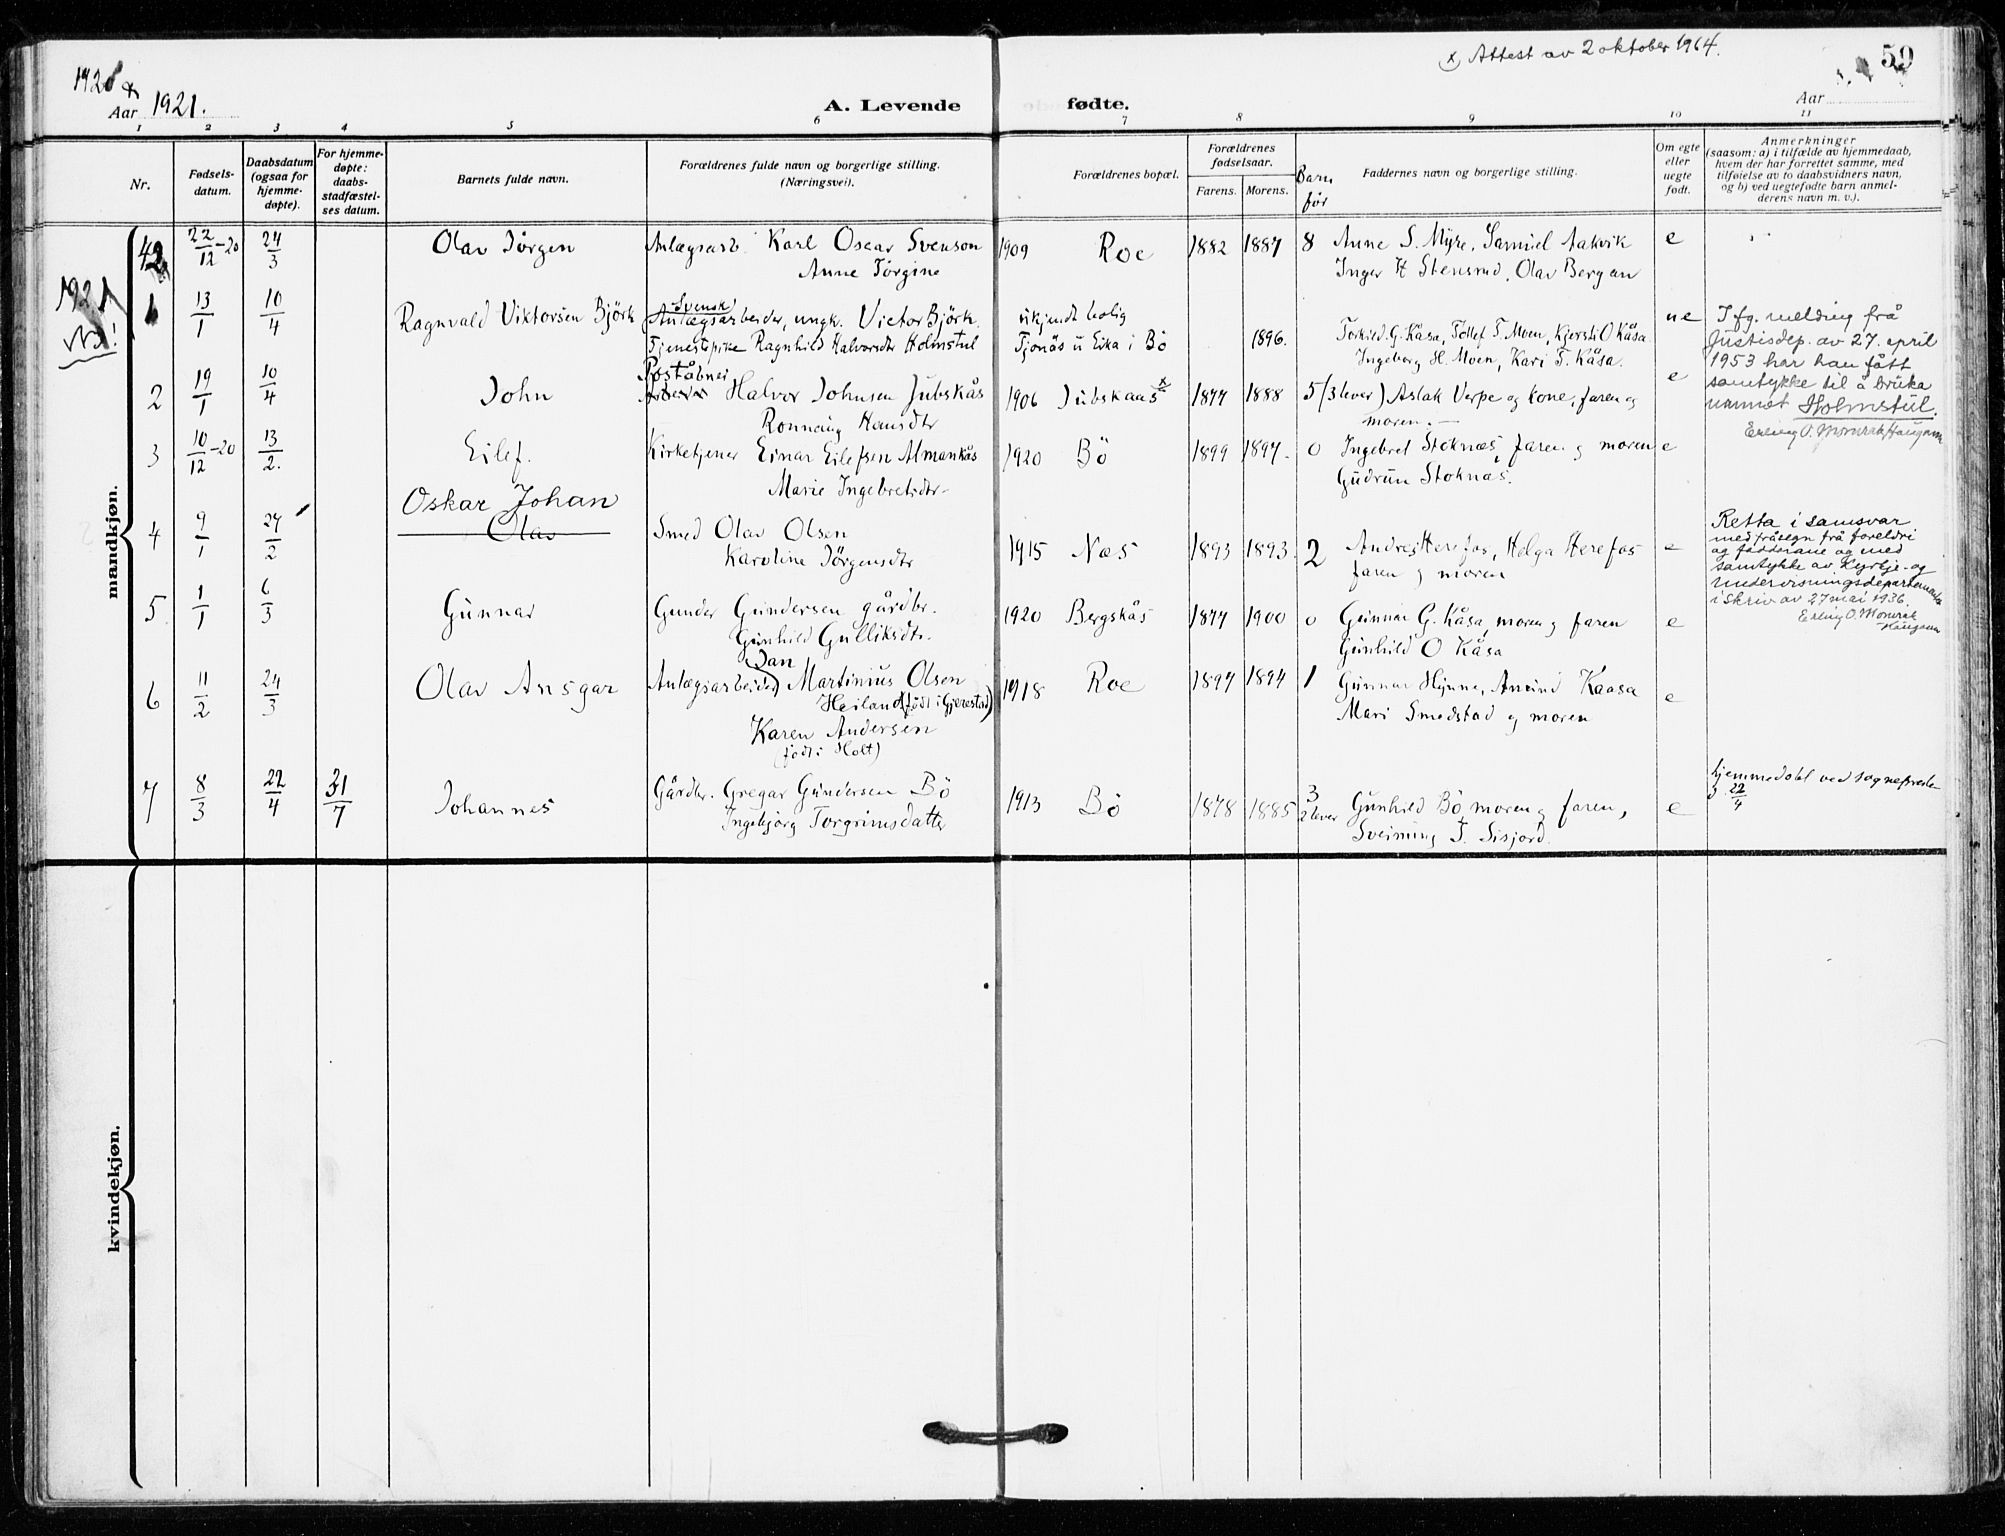 1920 &
Aar 1921.
A. Levende fødte.
x) Attest av 2 oktober 1964.
59
Aar
1 2 3 4 5 6 7 8 9 10 11
Nr.
Fødsels-
datum.
Daabsdatum
(ogsaa for
hjemme-
døpte).
For hjemme-
døpte:
daabs-
stadfæstel-
ses datum.
Barnets fulde navn.
Forældrenes fulde navn og borgerlige stilling.
(Næringsvei).
Forældrenes bopæl.
Forældrenes
fødselsaar.
Farens. Morens.
Barn
før
Faddernes navn og borgerlige stilling.
Om egte
eller
uegte
født.
Anmerkninger
(saasom: a) i tilfælde av hjemmedaab,
hvem der har forrettet samme, med
tilføielse av to daabsvidners navn,
og b) ved uegtefødte barn anmel-
derens navn m. v.).
mandkjøn.
42 22/12-20 24/3 Olav Jørgen Anlægsarb. Karl Oscar Svenson 1909 Roe 1882 1887 8 Anne S. Myre, Samuel Aakvik e
Anne Jørgine Inger H Stensrud, Olav Bergan
1921
NB!
1 13/1 10/4 Ragnvald Viktorsen Björk Svensk
Anlægsarbeider, ungk. Victor Björk. ukjendt bolig
Tjenestepike Ragnhild Halvorsdtr Holmstul Tjonäs u Eika i Bö 1896. Torkild G. Kåsa, Tollef T. Moen, Kjersti O Kåsa
Ingeborg H. Moen, Kari T. Kåsa.
ue
Ifg. melding frå
Justisdep. av 27. april
1953 har han fått
samtykke til å bruka
namnet Holmstul.
Erling O. Momrak Haugan
2 19/1 10/4 John Poståbner
Arbeider Halvor Johnsen Jubskås 1906 Jubskaas x 1877 1888 5 (3 lever) Aslak Verpe og kone, faren og e
Ronnaug Hansdtr moren. —
3 10/12-20 13/2. Eilef. Kirketjener Einar Eilefsen Almankås 1920 Bö 1899 1897. 0 Ingebret Stoknæs, faren g moren e
Marie Ingebretsdtr. Gudrun Stoknæs.
Oskar Johan
4 9/1 27/2 Olav Smed Olav Olsen
Karoline Jörgensdtr 1915 Næs 1893 1893. 2 Andres Herefos, Helga Herefos e
faren g moren
Retta i samsvar
med fråsegn frå foreldri
og fadderane og med
samtykke av Kyrkje- og
undervisningsdepartementet
i skriv av 27 mai 1936.
Erling O. Momrak
Haugan
5. 1/1 6/3 Gunnar Gunder Gundersen gårdbr. 1920 Bergskås 1877 1900 0 Gunnar G. Kåsa, moren g faren e
Gunhild Gulliksdtr. Gunhild O Kåsa
6 11/2 24/3 Olav Ansgar Jan
Anlægsarbeider Martinius Olsen 1918 Roe 1897 1894 1 Gunnar Hynne, Kaasa e
Heiland (födt i Gjerestad) Mari Smedstad g moren
Karen Andersen
(födt i Holt)
7 8/3 22/4 31/7 Johannes Gårdbr. Gregar Gundersen Bö 1913 Bö 1878 1885 3
2 lever Gunhild Bö, moren g faren, e
Ingebjörg Torgrimsdatter Sveinung T. Sisjord.
hjemmedøbt ved sogneprest
d. 22/4
kvindekjøn.